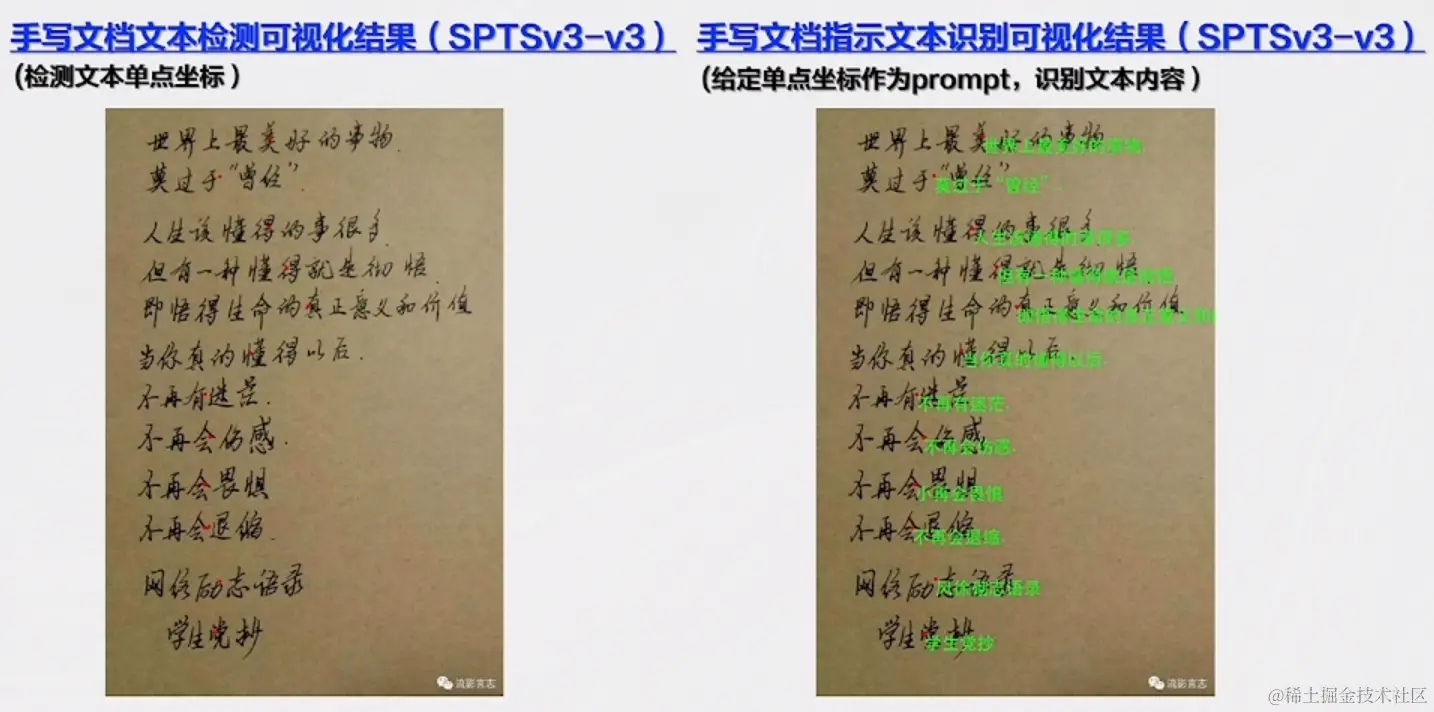 手写文档文本检测可视化结果（SPTSv3-v3）
(检测文本单点坐标）
世界上最美好的事物.
莫过于“曾经”.
人生该懂得的事很多.
但有一种懂得就是彻悟.
即悟得生命的真正意义和价值
当你真的懂得以后.
不再有迷茫.
不再会伤感.
不再会畏惧
不再会退缩.
网络励志语录
学生党抄
流影言志
手写文档指示文本识别可视化结果（SPTSv3-v3）
(给定单点坐标作为prompt，识别文本内容）
世界上最美好的事物.
世界上最美好的事物.
莫过于“曾经”.
莫过于“曾经”.
人生该懂得的事很多.
人生该懂得的事很多.
但有一种懂得就是彻悟.
但有一种懂得就是
即悟得生命的真正意义和价值
即悟得生命的真正意义和
当你真的懂得以后.
当你真的懂得以后.
不再有迷茫.
不再有迷茫.
不再会伤感.
不再会伤感.
不再会畏惧
小再会畏惧
不再会退缩.
不再会退缩.
网络励志语录
风徐励志语录
学生党抄
学生党抄
流影言志
@稀土掘金技术社区